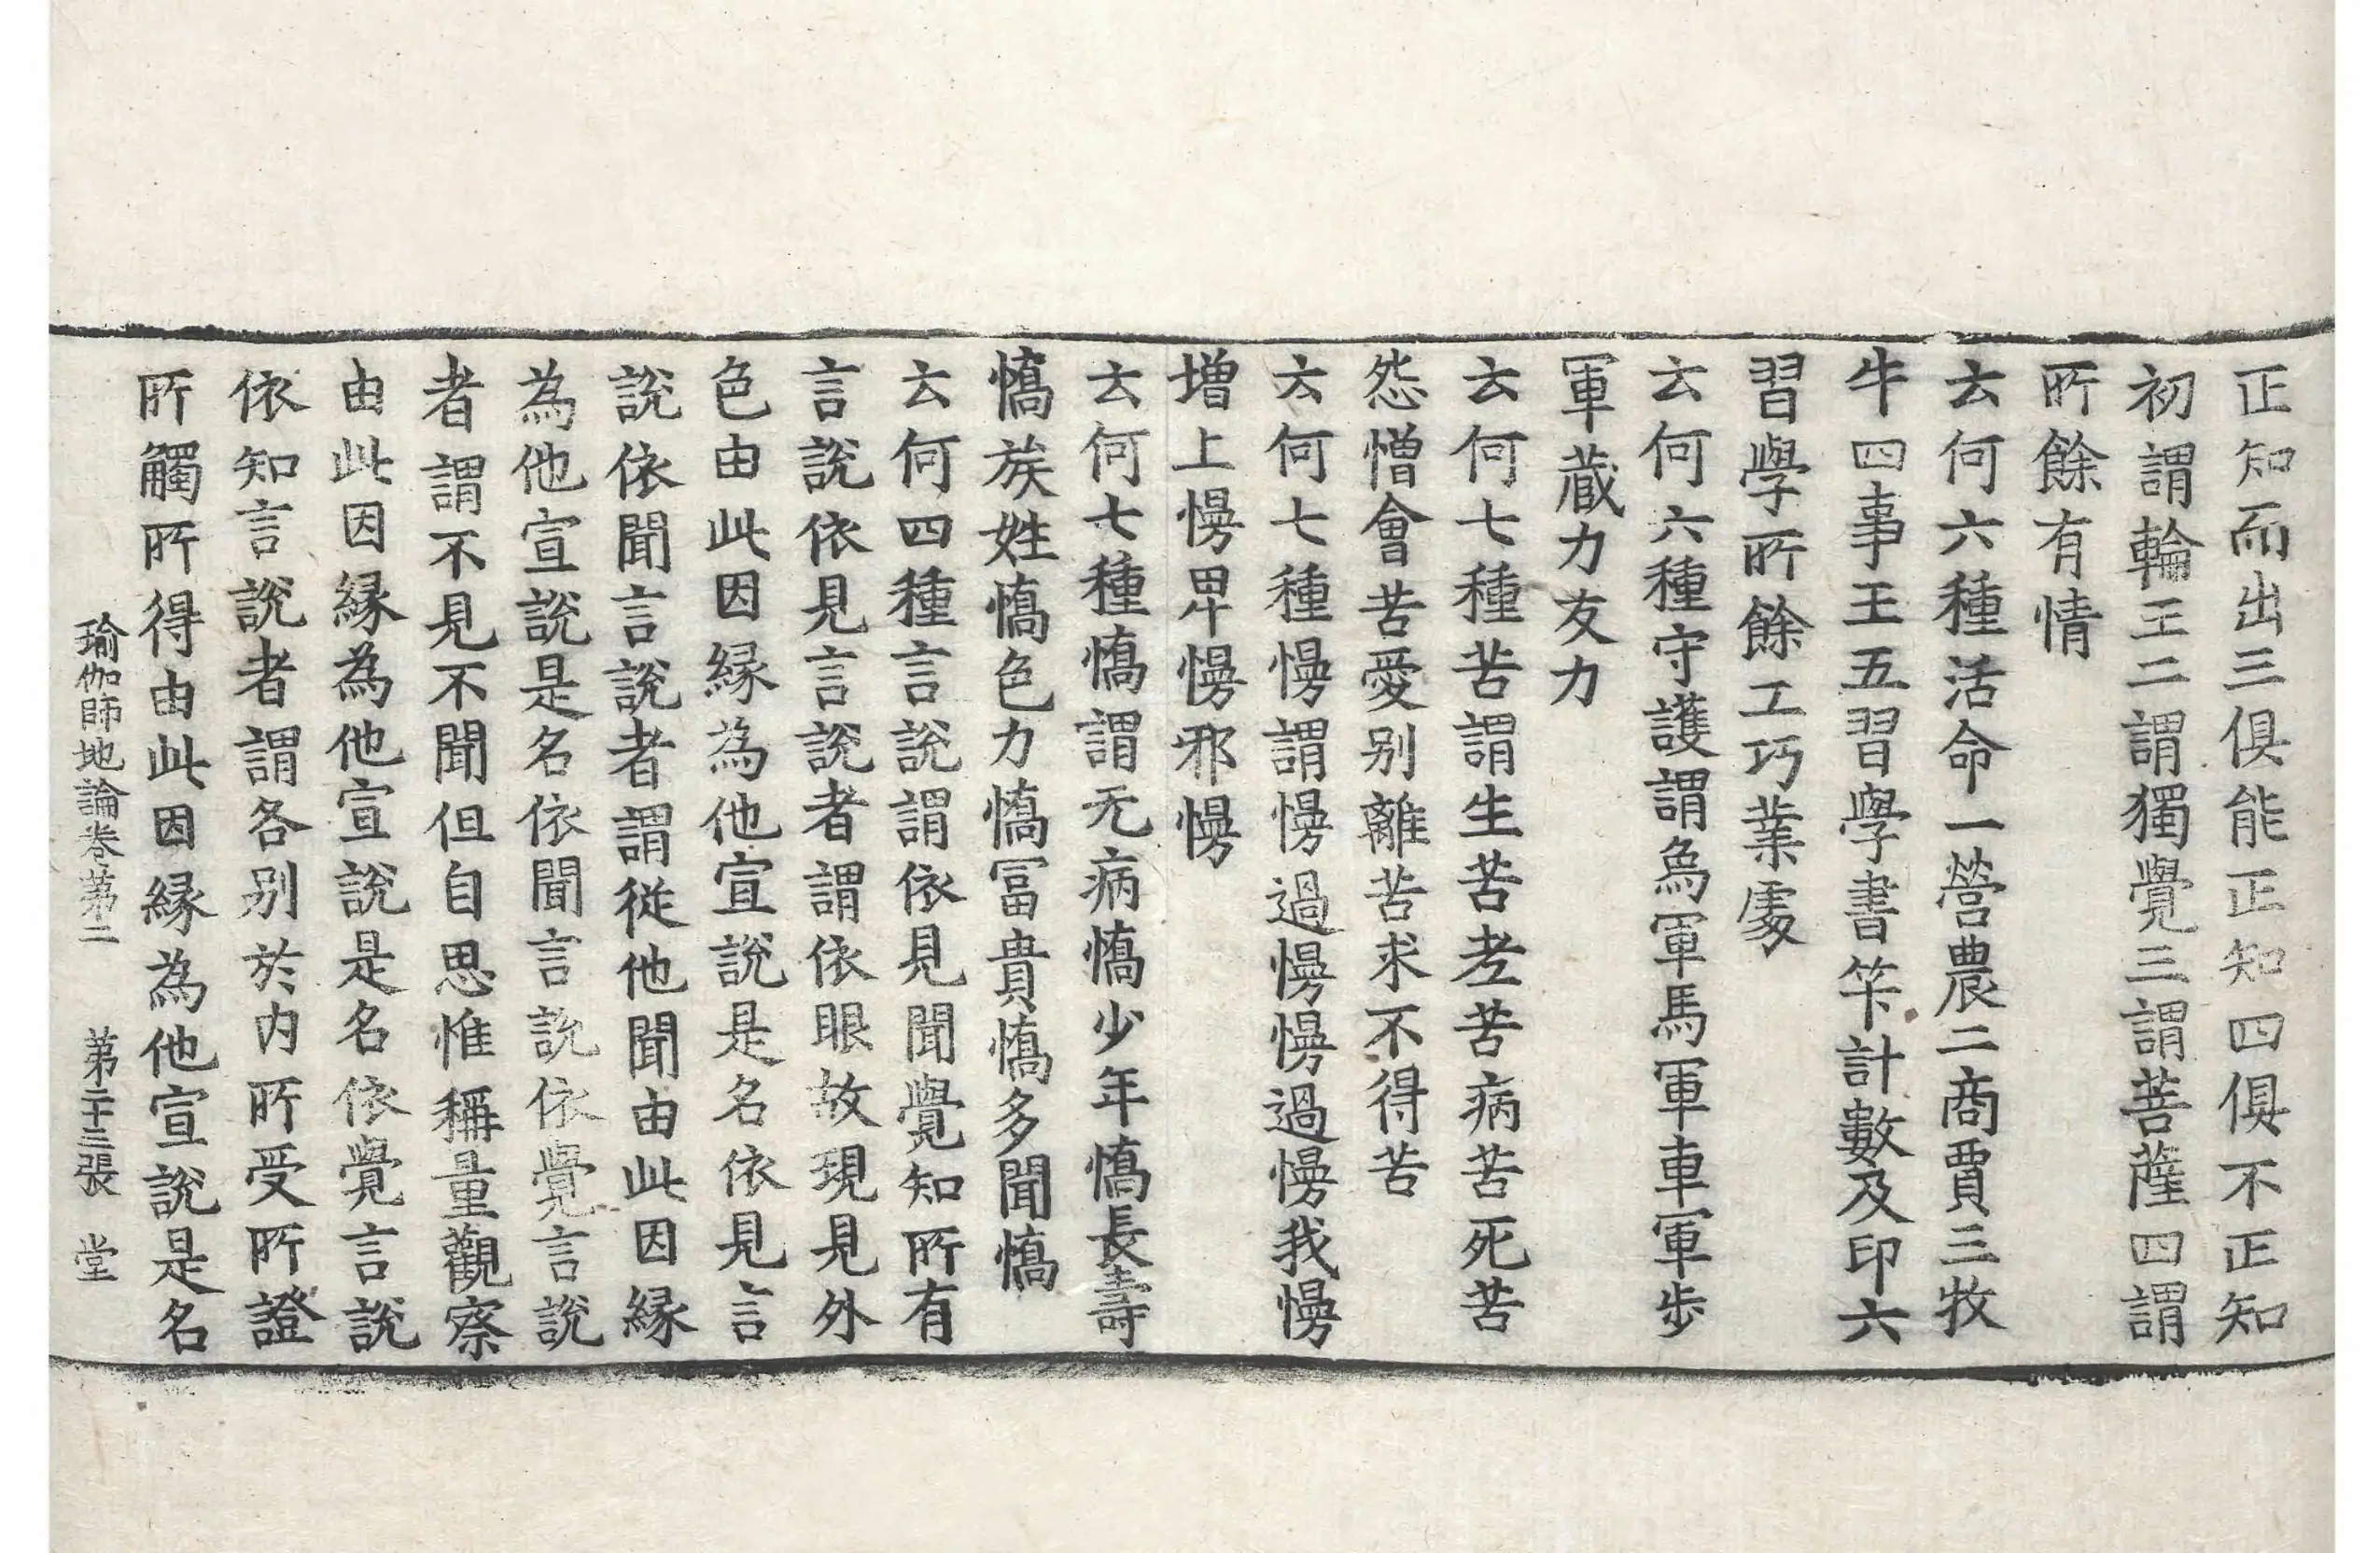 正知而出三俱能正知四俱不正知
初謂輪王二謂獨覺三謂菩薩四謂
所餘有情
云何六種活命一營農二商賈三牧
牛四事王五習學書筭計數及印六
習學所餘工巧業處
云何六種守護謂象軍馬軍車軍步
軍藏力友力
云何七種苦謂生苦老苦病苦死苦
怨憎會苦愛别離苦求不得苦
云何七種慢謂慢過慢慢過慢我慢
增上慢卑慢邪慢
云何七種憍謂无病憍少年憍長壽
憍族姓憍色力憍冨貴憍多聞憍
云何四種言說謂依見聞覺知所有
言說依見言說者謂依眼故現見外
色由此因緣為他宣說是名依見言
說依聞言說者謂從他聞由此因緣
為他宣說是名依聞言說依覺言說
者謂不見不聞但自思惟稱量觀察
由此因緣為他宣說是名依覺言說
依知言說者謂各别於內所受所證
所觸所得由此因緣為他宣說是名
瑜伽師地論卷第二 第二十三張 堂